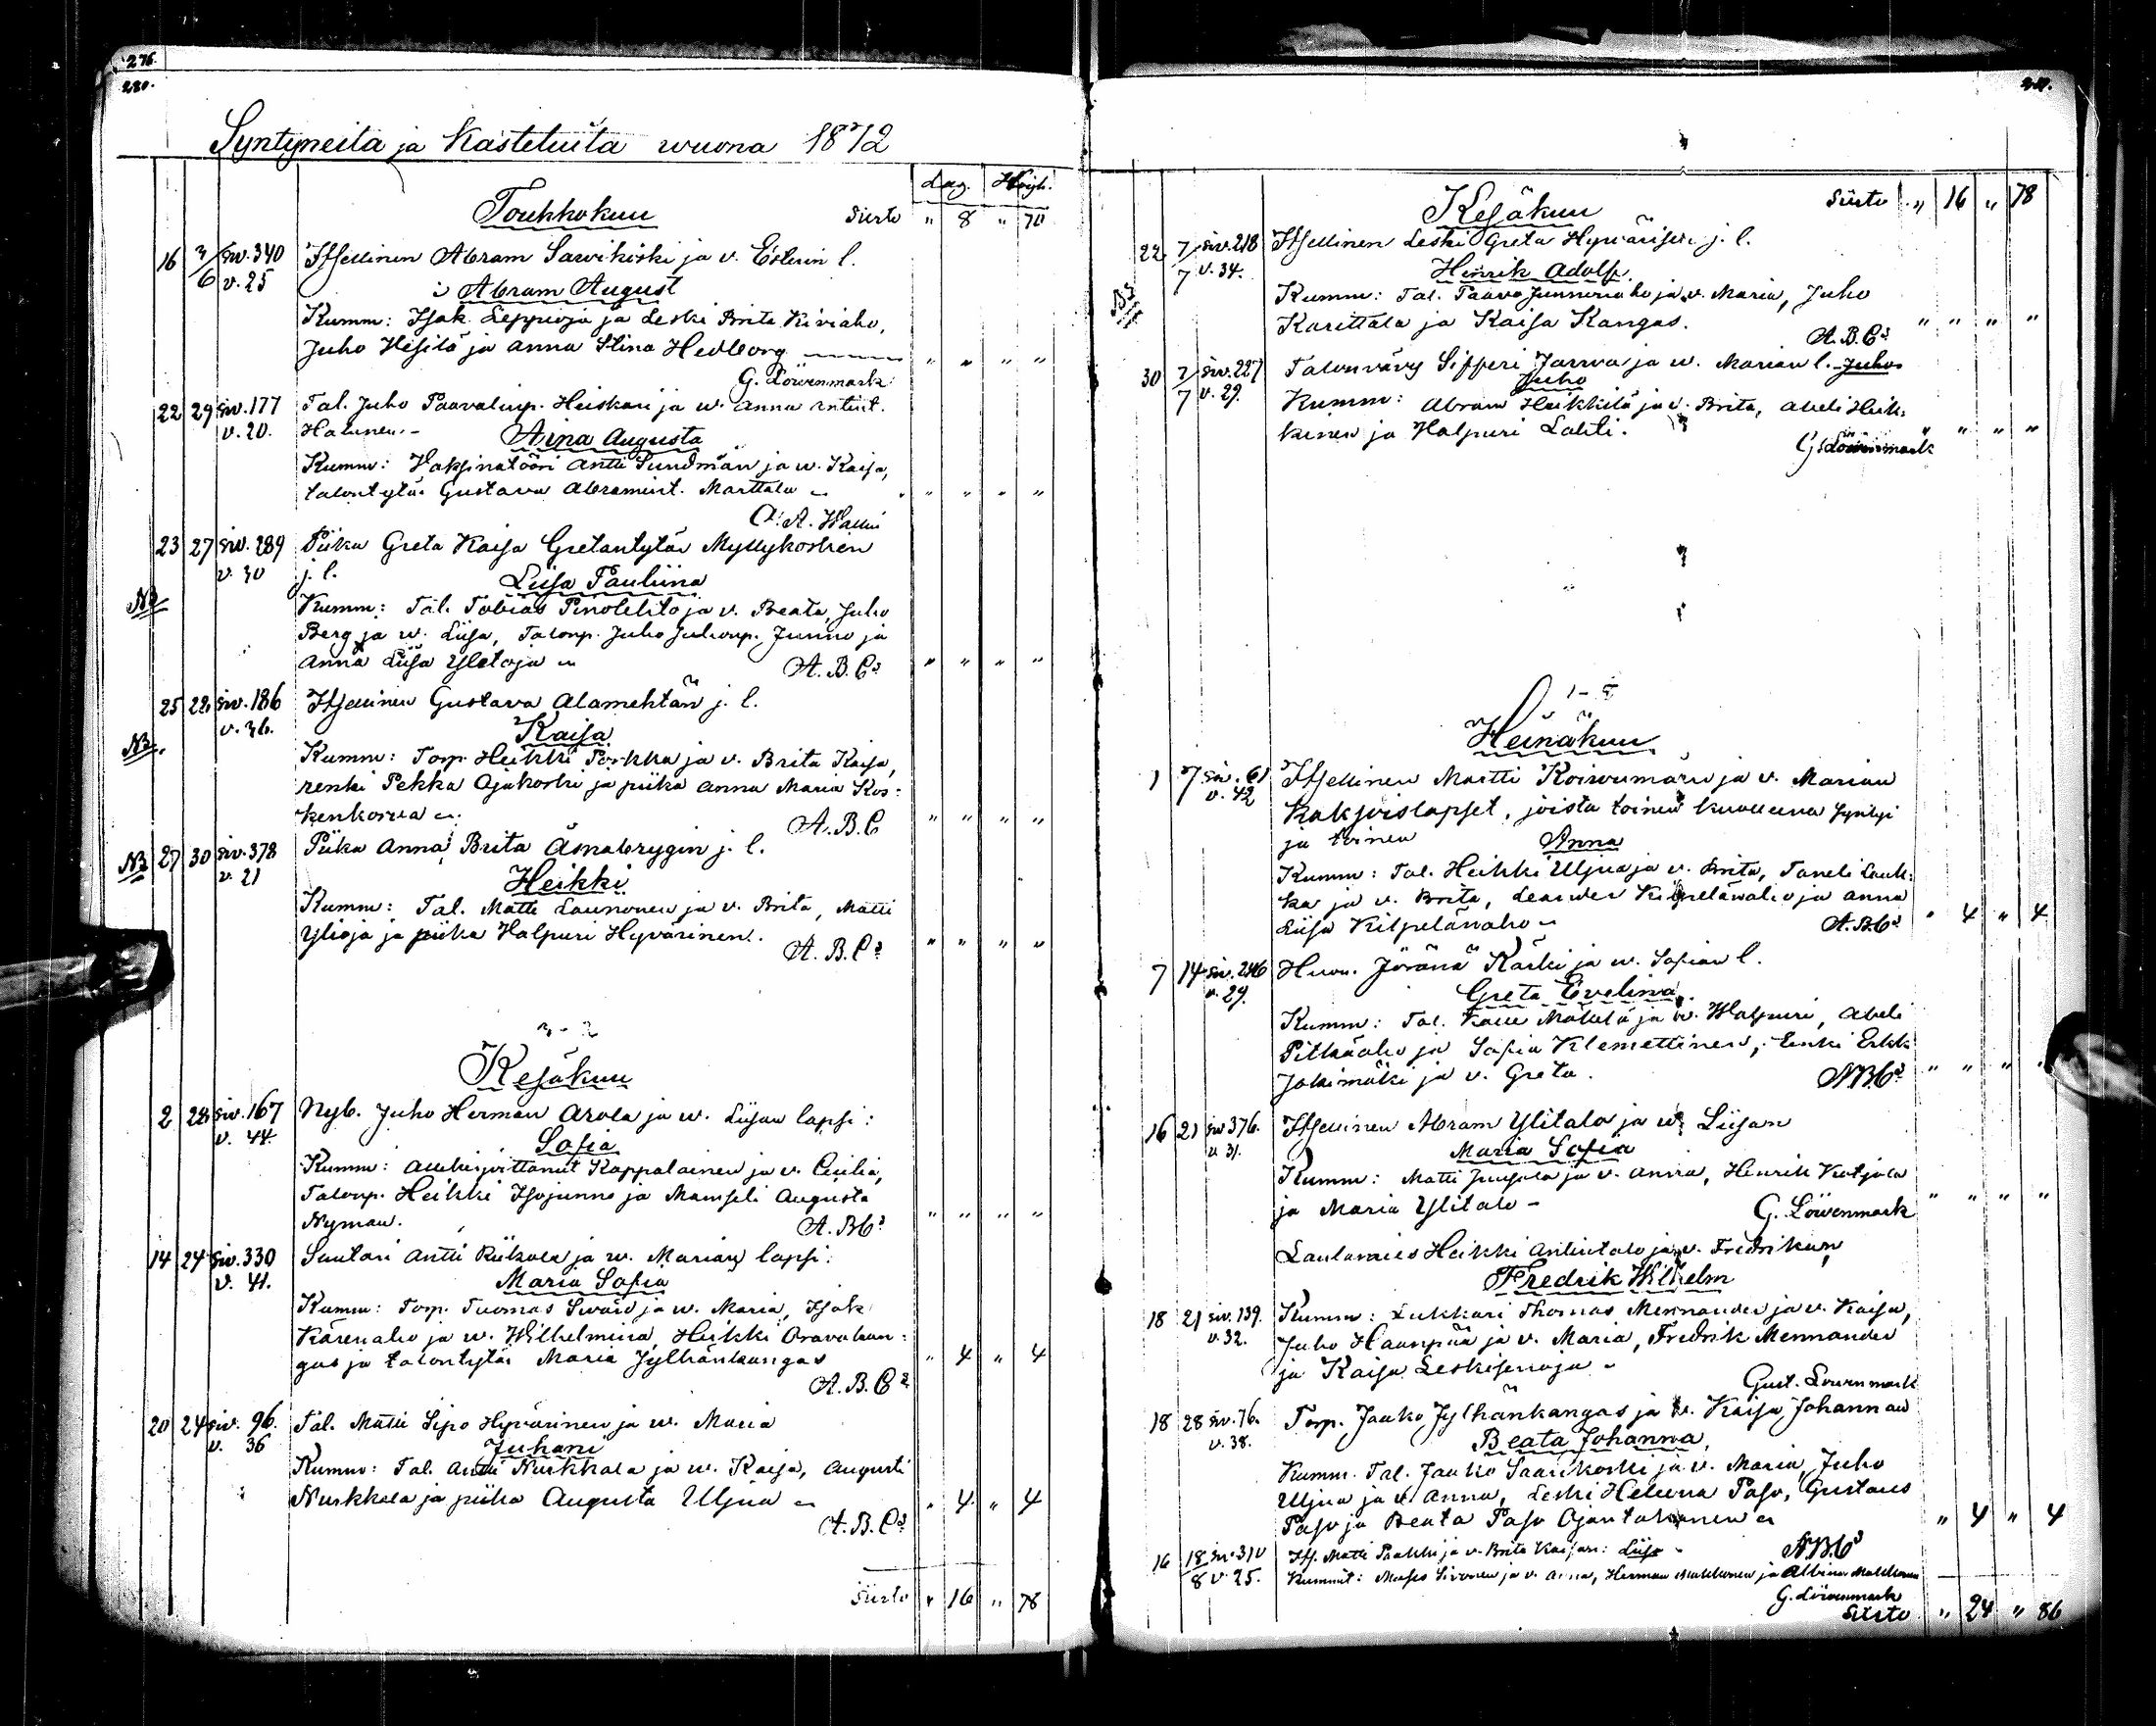 276.
280.
Syntyneitä ja Kastetuita wuona 1872
Lag. Högh.
Toukkokuu
Siirto " 8 " 70
16 3/6 siv. 340 v. 25 Itsellinen Abram Sarvikiski ja v. Esterin l.
Abram August
Kumm: Isak Leppioja ja Leski Brita Kiviaho,
Juho Hisilä ja Anna Stina Hedborg " " " "
G. Löwenmark
22 29 siv. 177 v. 20. Tal. Juho Paavalinp. Heiskari ja w. Anna Antint.
Halunen.
Aina Augusta
Kumm: Vaksinatööri Antti Sundman ja w. Kaisa,
talontytär Gustava Abramint. Marttala " " " "
23 27 siv. 289 v. 30 Piika Greta Kaisa Gretantytär Myllykosken
j. l.
Liisa Pauliina
NB
Kumm: Tal. Tobias Pinolehto ja v. Beata, Juho
Berg ja w. Liisa, Talonp. Juho Juhonp. Junno ja
Anna Liisa Ylitoja " " " "
A. B. Cs
25 22 siv. 186 v. 36. Itsellinen Gustava Alamehtän j. l.
Kaisa
NB.
Kumm: Torp. Heikki Porkka ja v. Brita Kaisa,
renki Pekka Ojakoski ja piika Anna Maria Kos:
kenkorva " " " "
A. B. C
NB 27 30 siv. 378 v. 21 Piika Anna Brita Åsnabrygin j. l.
Heikki
Kumm: Tal. Matti Launonen ja v. Brita, Matti
Ylioja ja piika Halpuri Hyvärinen. " " " "
A. B. Cs
3 - 2
Kesäkuu
2 28 siv. 167 v. 44. Nyb. Juho Herman Arola ja w. Liisan lapsi:
Sofia
Kumm: Kappalainen ja v. Cecilia,
Talonp. Heikki Isojunno ja Mamseli Augusta
Nyman. " " " "
A. B. Cs
14 24 siv. 330 v. 41. Suutari Antti Riikola ja w. Marian lapsi:
Maria Sofia
Kumm: Torp. Tuomas Svärd ja w. Maria, Isak
Kärenaho ja w. Wilhelmina, Heikki Oravakan:
gas ja talontytär Maria Jylhänkangas " 4 " 4
A. B. Cs
20 24 siv. 96. v. 36 Tal. Matti Sipo Hyvärinen ja w. Maria
Juhani
Kumm: Tal. Antti Nurkkala ja w. Kaisa, Augusti
Nurkkala ja piika Augusta Uljua " 4 " 4
A. B. Cs
Siirto " 16 " 78
Kesäkuu
Siirto " 16 " 78
22 7/7 siv. 218 v. 34. Itsellinen Leski Greta Hyvärisen j. l.
Henrik Adolf
NB
Kumm: Tal. Paavo Junnonaho ja v. Maria, Juho
Karittala ja Kaisa Kangas. " " " "
A. B. Cs
30 7/7 siv. 227 v. 29. Talonvävy Sipperi Jarva ja w. Marian l. Juho
Juho
Kumm: Abram Heikkilä ja v. Brita, Abeli Heik:
kinen ja Halpuri Lahti. " " " "
G. Löwenmark
1 - 5
Heinäkuu
1 7 siv. 61 v. 42 Itsellinen Martti Koivumäen ja v. Marian
kaksoislapset, joista toinen kuolleena syntyi
ja toinen Anna
Kumm: Tal. Heikki Uljua ja v. Brita, Taneli Lauk:
ka ja v. Brita, Leander Kilpelänaho ja Anna
Liisa Kilpelänaho " 4 " 4
A. B. Cs
7 14 siv. 246 v. 29. Huon. Jöränä Karki ja w. Sofian l.
Greta Evelina
Kumm: Tal. Kalle Mäkelä ja w. Walpuri, Abeli
Pitkäaho ja Sofia Klemettinen, Renki Erkki
Jokimäki ja v. Greta. " " " "
A. B. Cs
16 21 siv. 376. v. 31. Itsellinen Abram Ylitalo ja w. Liisan
Maria Sofia
Kumm: Matti Junsola ja v. Anna, Henrik Katjola
ja Maria Ylitalo - " " " "
G. Löwenmark
Lautamies Heikki Antintalo ja v. Fredrikan,
Fredrik Wilhelm
18 21 siv. 139. v. 32. Kumm: Lukkari Thomas Mennander ja v. Kaisa,
Juho Haanpää ja v. Maria, Fredrik Mennander
ja Kaisa Leskisenoja -
Gust. Löwenmark
18 28 siv. 76. v. 38. Torp. Jaako Jylhänkangas ja w. Kaisa Johannan
Beata Johanna,
Kumm. Tal. Jaako Saarikoski ja v. Maria, Juho
Uljua ja v. Anna, Leski Helena Paso, Gustaus
Paso ja Beata Paso " 4 " 4
A. B. Cs
16 18/8 siv. 310 v. 25. Its. Matti Pukki ja v. Brita Kaisan: Liisa -
Kummit: Moses Sivonen ja v. Anna, Herman Makkonen ja Albina Makkonen
G. Löwenmark
Siirto " 24 " 86